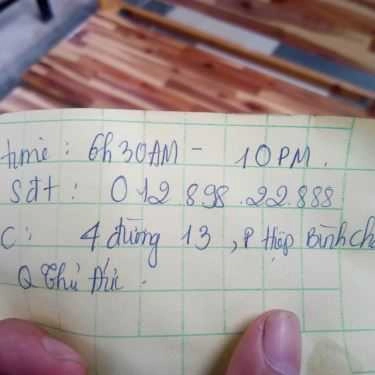 time: 6h30AM - 10PM.
Sđt: 012.898.22.888
C: 4 đường 13, P Hiệp Bình Ch
Q Thủ Đức.